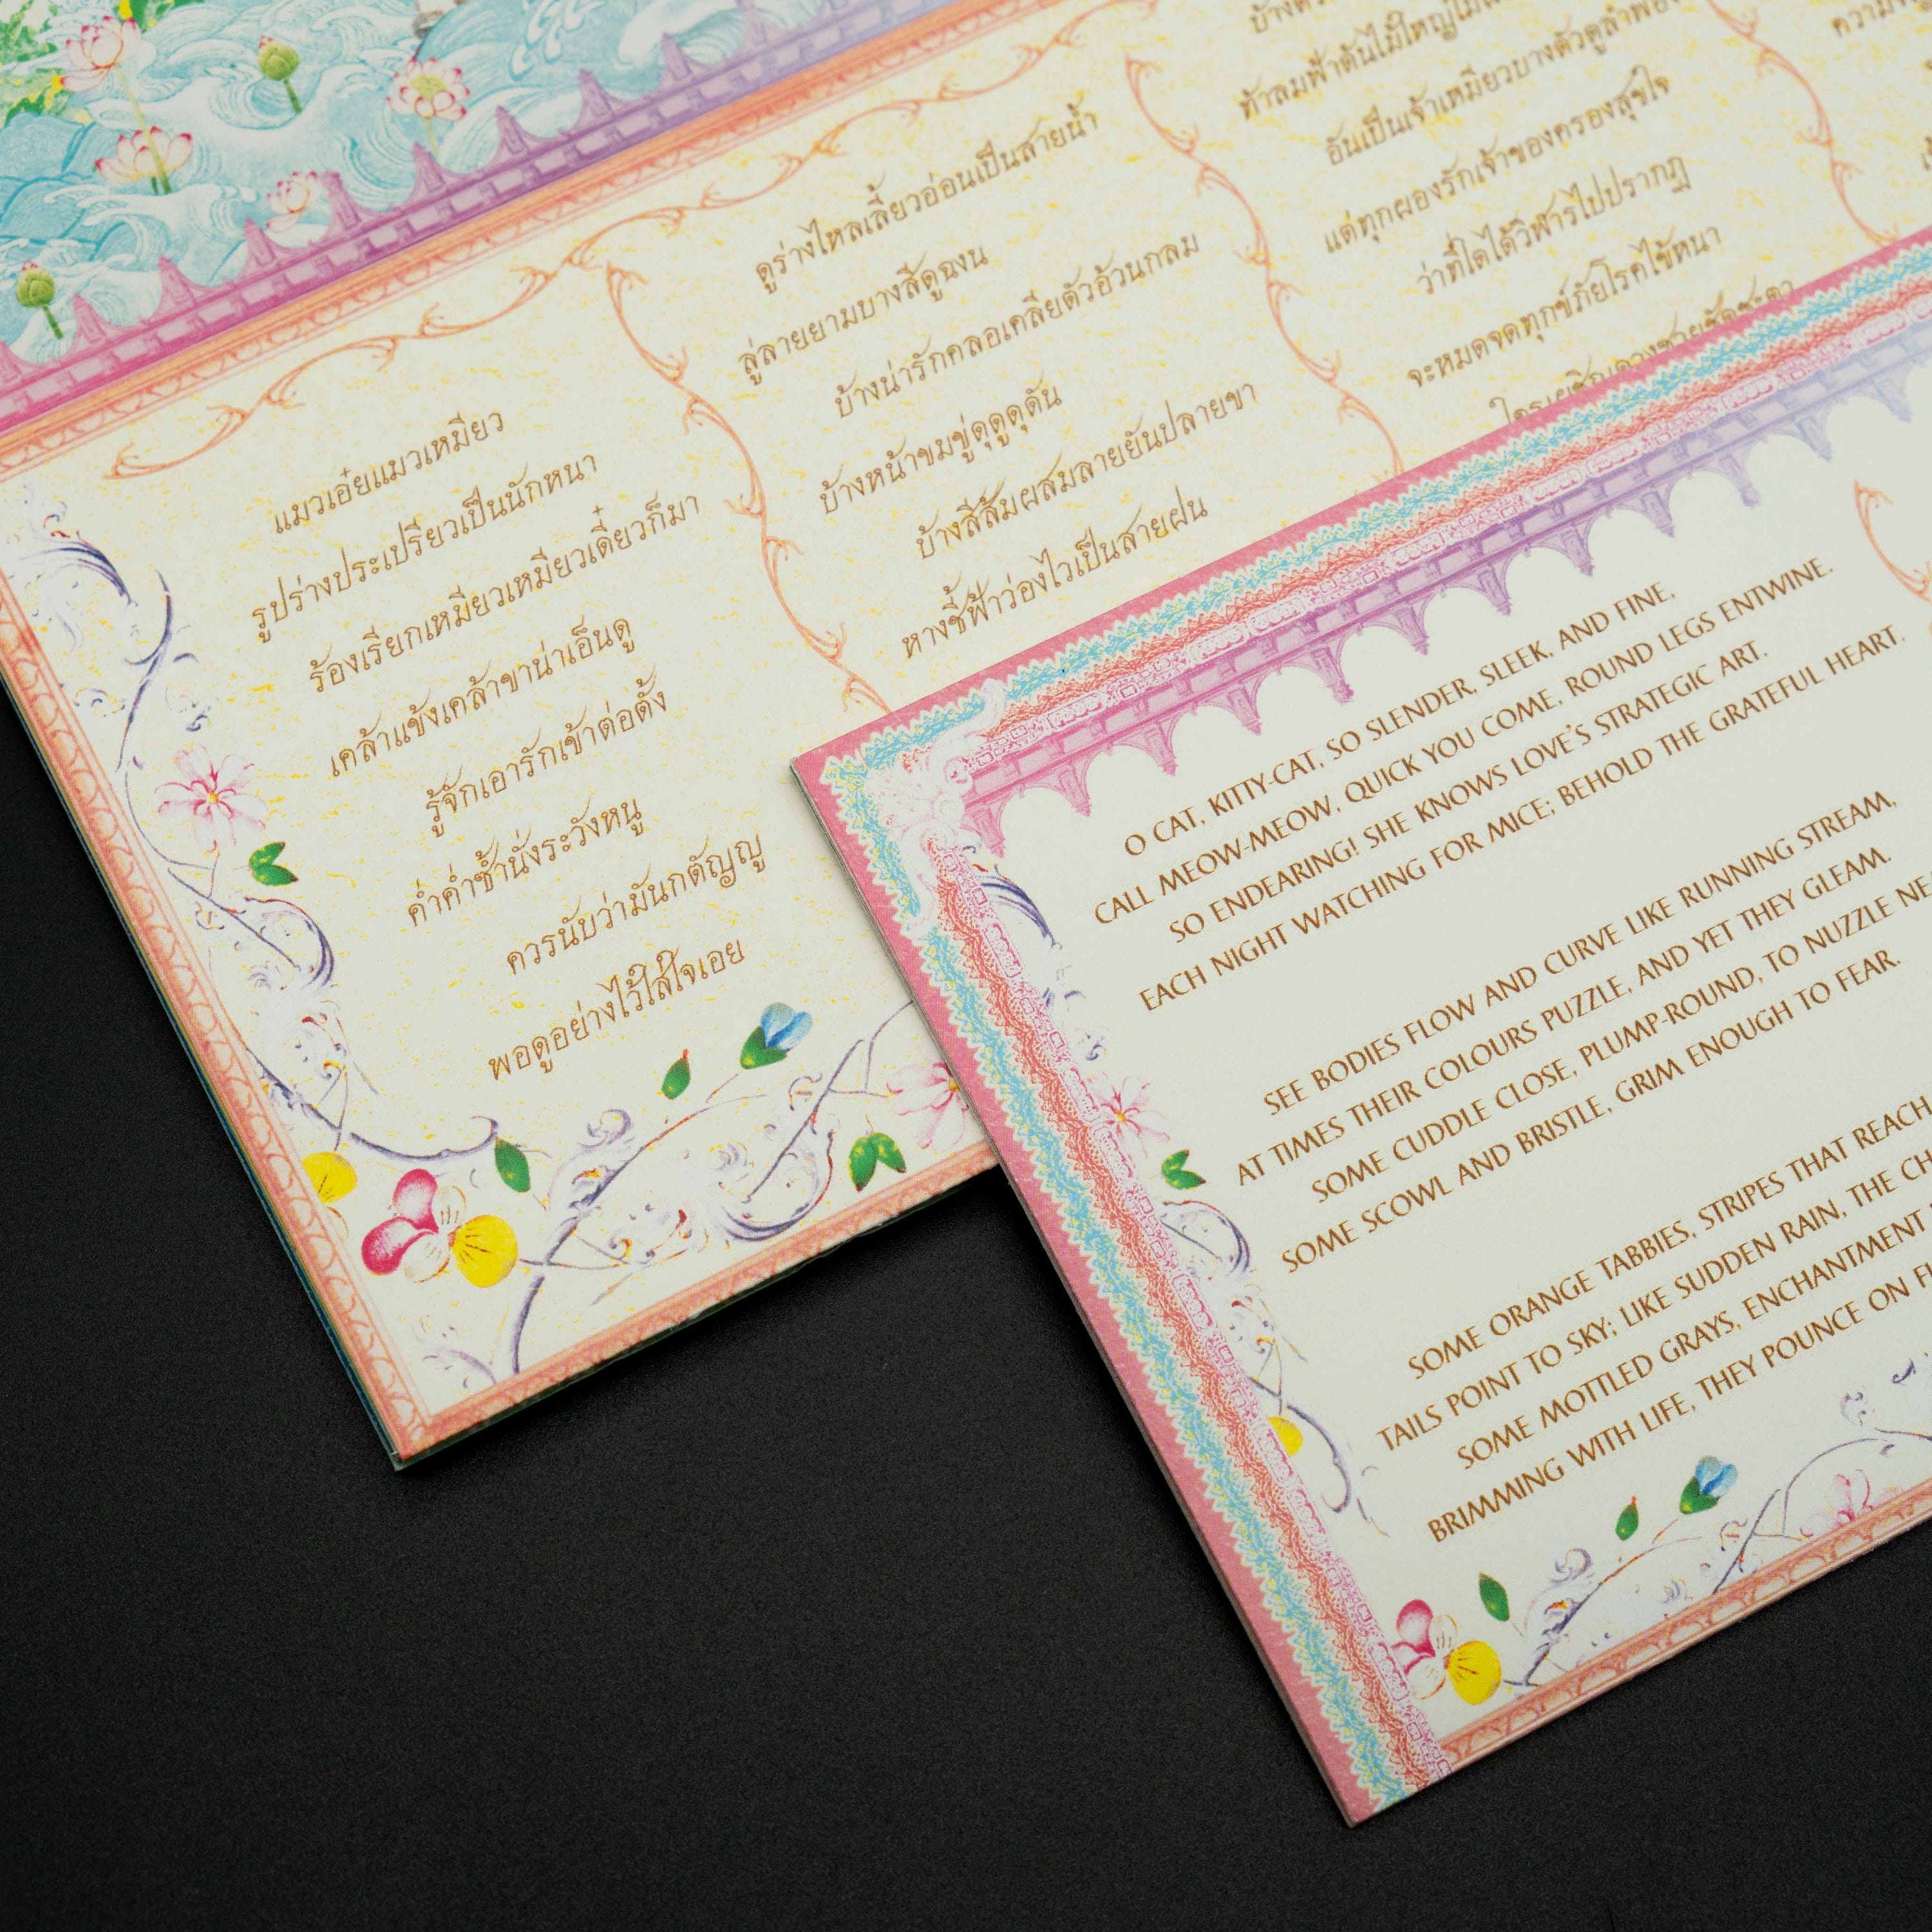 แมวเอ๋ยแมวเหมียว
รูปร่างประเปรียวเป็นนักหนา
ร้องเรียกเหมียวเหมียวเดี๋ยวก็มา
เคล้าแข้งเคล้าขาน่าเอ็นดู
รู้จักเอารักเข้าต่อตั้ง
ค่ำค่ำซ้ำนั่งระวังหนู
ควรนับว่ามันกตัญญู
พอดูอย่างไว้ใส่ใจเอย
ดูร่างไหลเลี้ยวอ่อนเป็นสายน้ำ
ลู่ลายยามบางสีดูฉงน
บ้างน่ารักคลอเคลียตัวอ้วนกลม
บ้างหน้าขมขู่ดุดูดุดัน
บ้างสีส้มผสมลายยันปลายขา
หางชี้ฟ้าว่องไวเป็นสายฝน
ท้าลมฟ้าต้นไม้ใหญ่
อันเป็นเจ้าเหมียวบางตัวดูลำพอง
แต่ทุกผองรักเจ้าของครองสุขใจ
ว่าที่ใดได้วิฬาร์ไปปรากฏ
จะหมดจดทุกข์ภัยโรคไข้หนา
O CAT, KITTY-CAT, SO SLENDER, SLEEK, AND FINE,
CALL MEOW-MEOW, QUICK YOU COME, ROUND LEGS ENTWINE.
SO ENDEARING! SHE KNOWS LOVE'S STRATEGIC ART.
EACH NIGHT WATCHING FOR MICE; BEHOLD THE GRATEFUL HEART.
SEE BODIES FLOW AND CURVE LIKE RUNNING STREAM,
AT TIMES THEIR COLOURS PUZZLE, AND YET THEY GLEAM.
SOME CUDDLE CLOSE, PLUMP-ROUND, TO NUZZLE
SOME SCOWL AND BRISTLE, GRIM ENOUGH TO FEAR.
SOME ORANGE TABBIES, STRIPES THAT REACH
TAILS POINT TO SKY; LIKE SUDDEN RAIN, THE
SOME MOTTLED GRAYS, ENCHANTMENT
BRIMMING WITH LIFE, THEY POUNCE ON